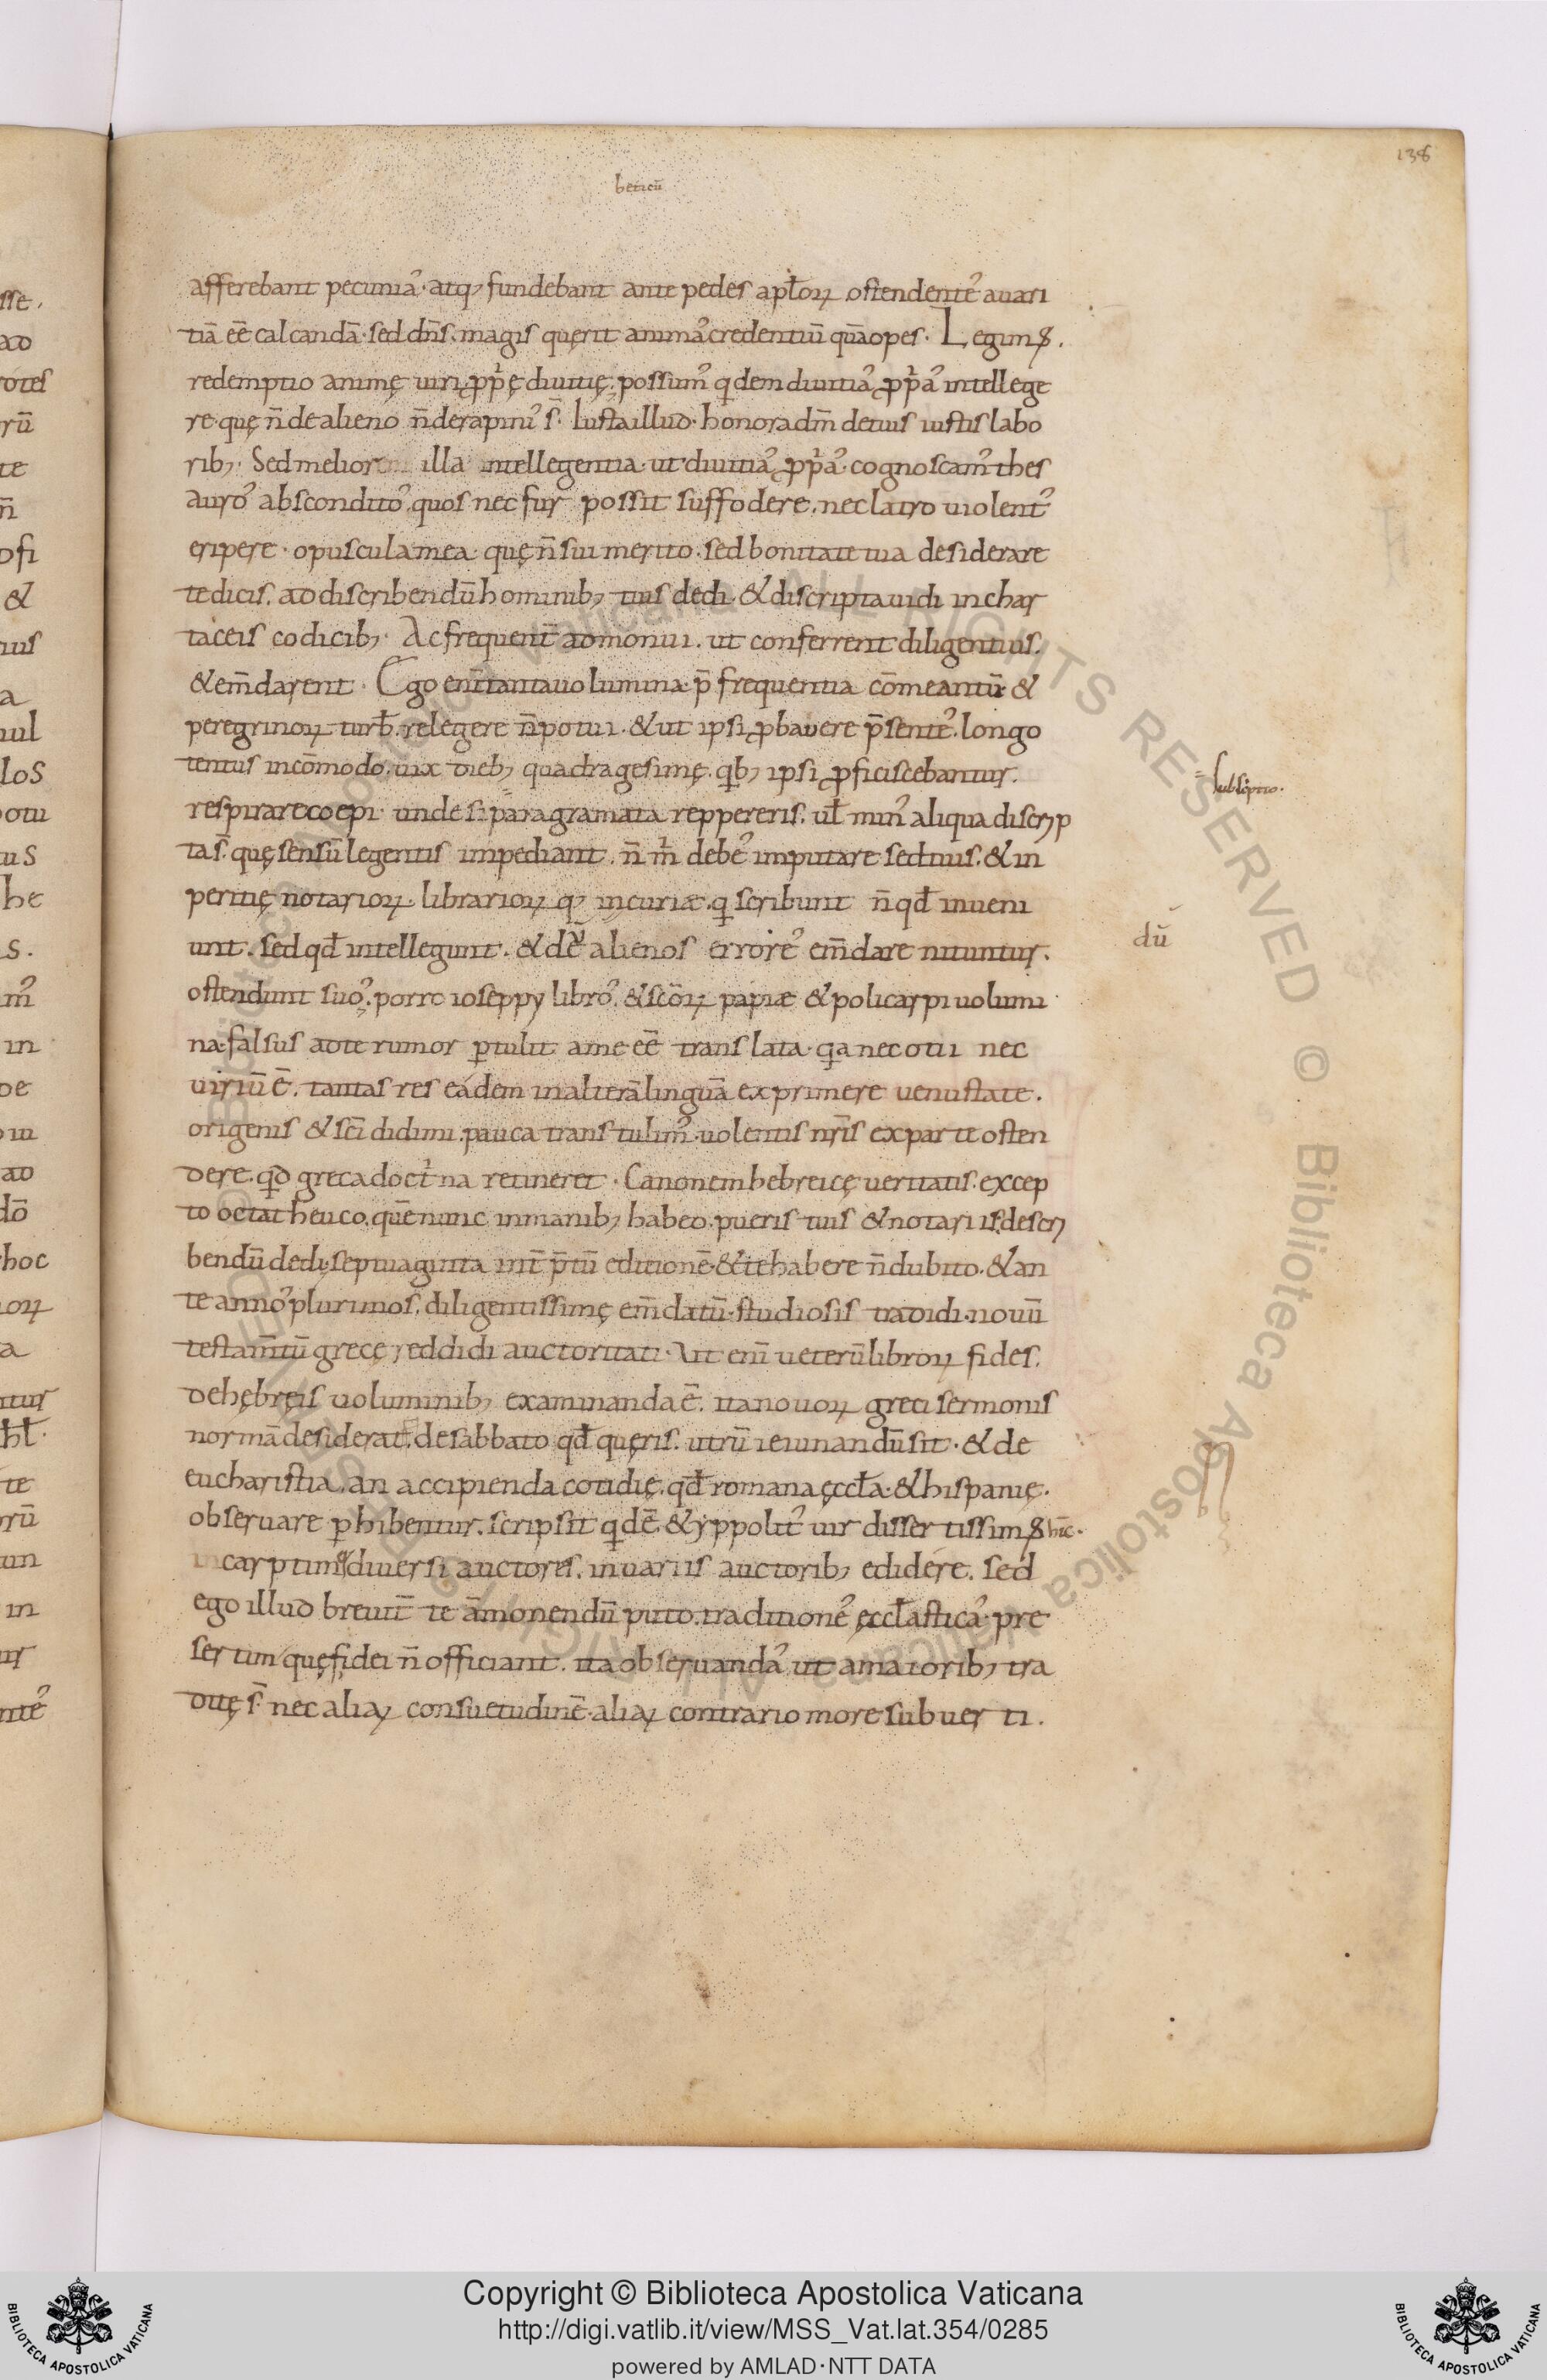 138
beticū
afferebant pecuniaꝰ· atqꝫ fundebant ante pedes apƚoꝝ ostendenteꝰ auari
tiā eē calcandā· sed dn̄s. magis querit animaꝰ credentiū quā opes· Legimꝰ.
redemptio animę uiri ꝓp̍ę diuitię. possumꝰ qdem diuitiaꝰ ꝓp̍aꝰ intellege
re· quę n̄ de alieno n̄ de rapiniꝰ s̄· Iusta illud· honora dm̄ de tuis iustis labo
ribꝫ· Sed melior illa intellegentia· ut diuitiaꝰ ꝓp̍aꝰ· cognoscamꝰ thes
auroꝰ absconditoꝰ, quos nec fur possit suffodere, nec latro uiolentꝰ
eripere· opuscula mea· quę n̄ sui merito· sed bonitate tua desiderare
te dicis. ad discribendū hominibꝫ tuis dedi· & discripta uidi in char
taceis codicibꝫ· Ac frequent̄ admonui. ut conferrent diligentius.
& em̄darent· Ego enī tanta uolumina· p̄ frequentia cōmeantū· &
peregrinoꝝ turƀ. relegere n̄ potui· & ut ipsi ꝓbauere p̄senteꝰ. longo
tentus incōmodo. uix diebꝫ quadragesimę. qbꝫ ipsi ꝓficiscebantur.
respirare coepi· unde si paragramata reppereris. uƚ minꝰ aliqua discꝝp
ta s̄· quę sensū legentis impediant. n̄ m̍ debeꝰ imputare sed tuis. & in
peritię notarioꝝ. librarioꝝ qꝫ incuriæ. q scribunt n̄ qđ inueni
unt. sed qđ intellegunt. & dē alienos erroreꝰ em̄dare nituntur.
ostendunt suoꝰ. porro ioseppy libroꝰ. & sc̄oꝝ papiæ & policarpi uolumi
na· falsus ad te rumor ꝑtulit a me eē translata· qa nec otii nec
uiriū ē. tantas res eadem in alterā linguā exprimere uenustate.
origenis & sc̄i didimi· pauca transtulimꝰ· uolentis nr̄is ex parte osten
dere. qđ greca doct̍na retineret· Canonem hebreicę ueritatis. excep
to octatheuco, quē nunc in manibꝫ habeo. pueris tuis & notariis, descꝝ
bendū dedi. septuaginta int̄p̄tū editionē· & te habere n̄ dubito. & an
te annoꝰ plurimos. diligentissimę em̄datū· studiosis tradidi· nouū
testam̄tū grecę reddidi auctoritati· Ut enī ueterū libroꝝ fides.
de hębreis uoluminibꝫ examinanda ē. ita nouoꝝ greci sermonis
normā desiderat. de sabbato qđ quęris. utrū ieiunandū sit· & de
eucharistia. an accipienda cotidię. qđ romana ęccƚa· & hispanię.
obseruare ꝑhibentur. scripsit qdē· & yppolitꝰ uir dissertissimꝰ hīc·
carptim & diuersi auctores. in uariis auctoribꝫ edidere. sed
ego illud breuit̄ te āmonendū puto. traditioneꝰ ęccƚasticaꝰ· pre
sertim quę fidei n̄ officiant. ita obseruandaꝰ ut a maioribꝫ tra
ditę s̄· nec aliaꝝ consuetudinē· aliaꝝ contrario more subuerti.
subscriptio.
dū
Copyright © Biblioteca Apostolica Vaticana
http://digi.vatlib.it/view/MSS_Vat.lat.354/0285
powered by AMLAD·NTT DATA